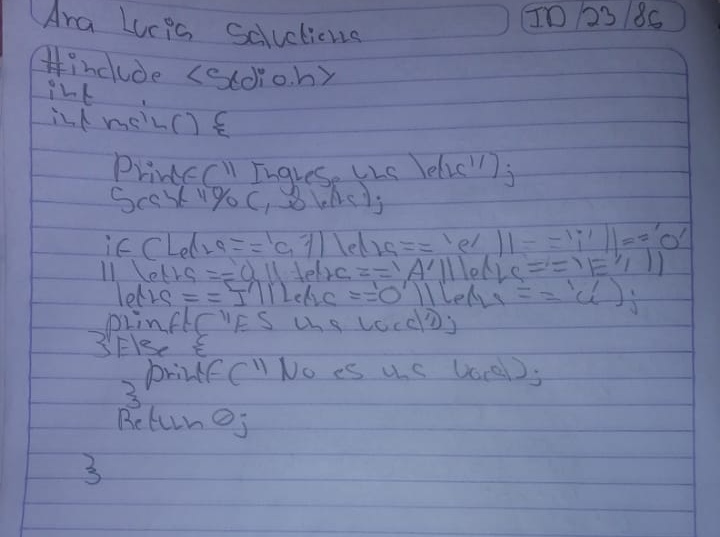 Ana Lucia
ID/23/86
#include <stdio.h>
int
int main() {
printf(" Ingrese una letra");
Scanf "%c, & letra);
if (Letra=='a'|| letra=='e' || =='i' ||=='o'
|| letra == || letra =='A'|| letra =='E' ||
letra == I'|| letra =='O'|| letra == );
printf("ES una vocal");
}Else {
printf("No es una vocal);
}
Return 0;
}